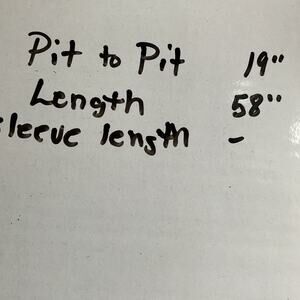 Pit to Pit 19"
Length 58"
sleeve length -